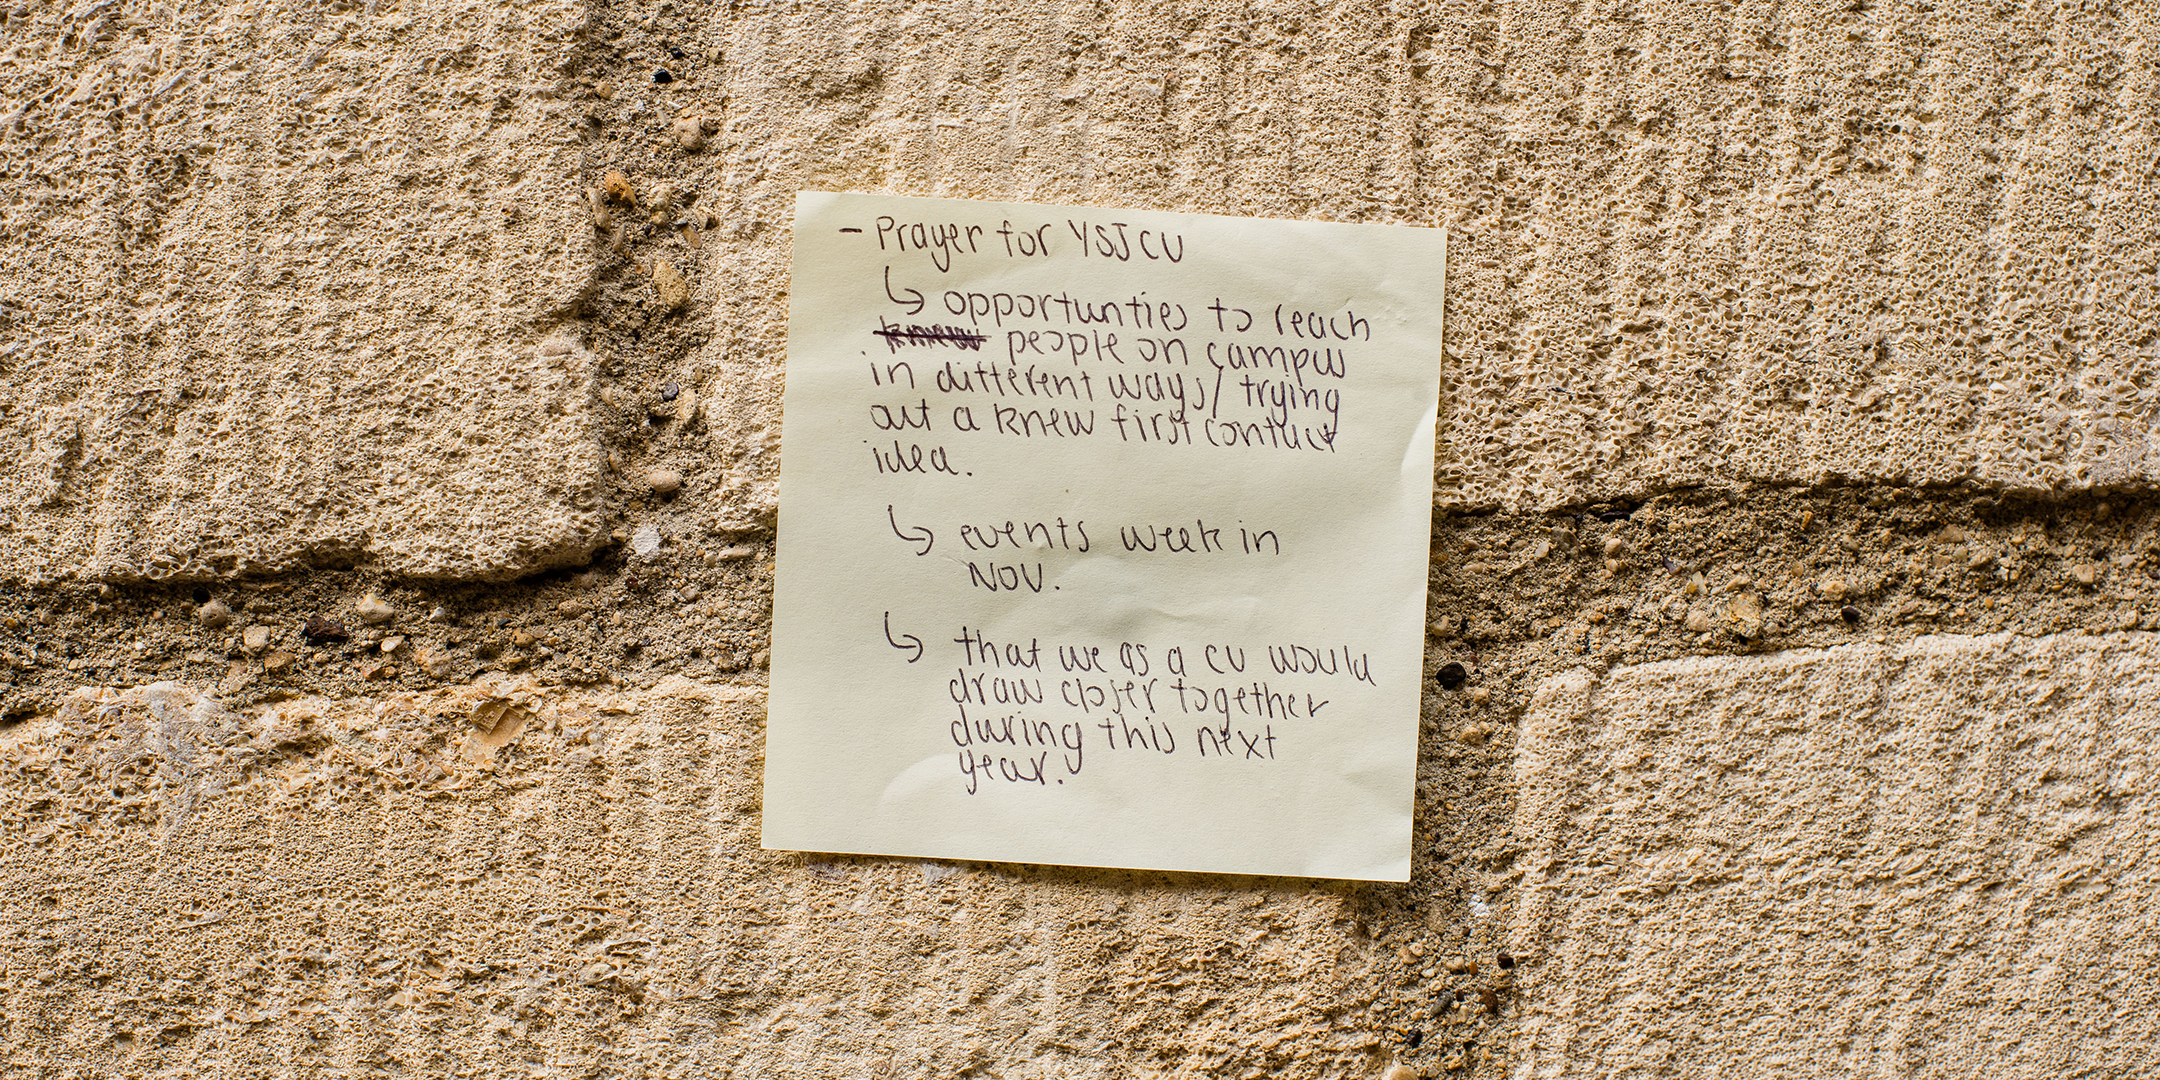 - Prayer for YSJCU
↳ opportunties to reach
people on campus
in different ways/ trying
out a knew first contact
idea.
↳ events week in
NOV.
↳ that we as a CU would
draw closer together
during this next
year.